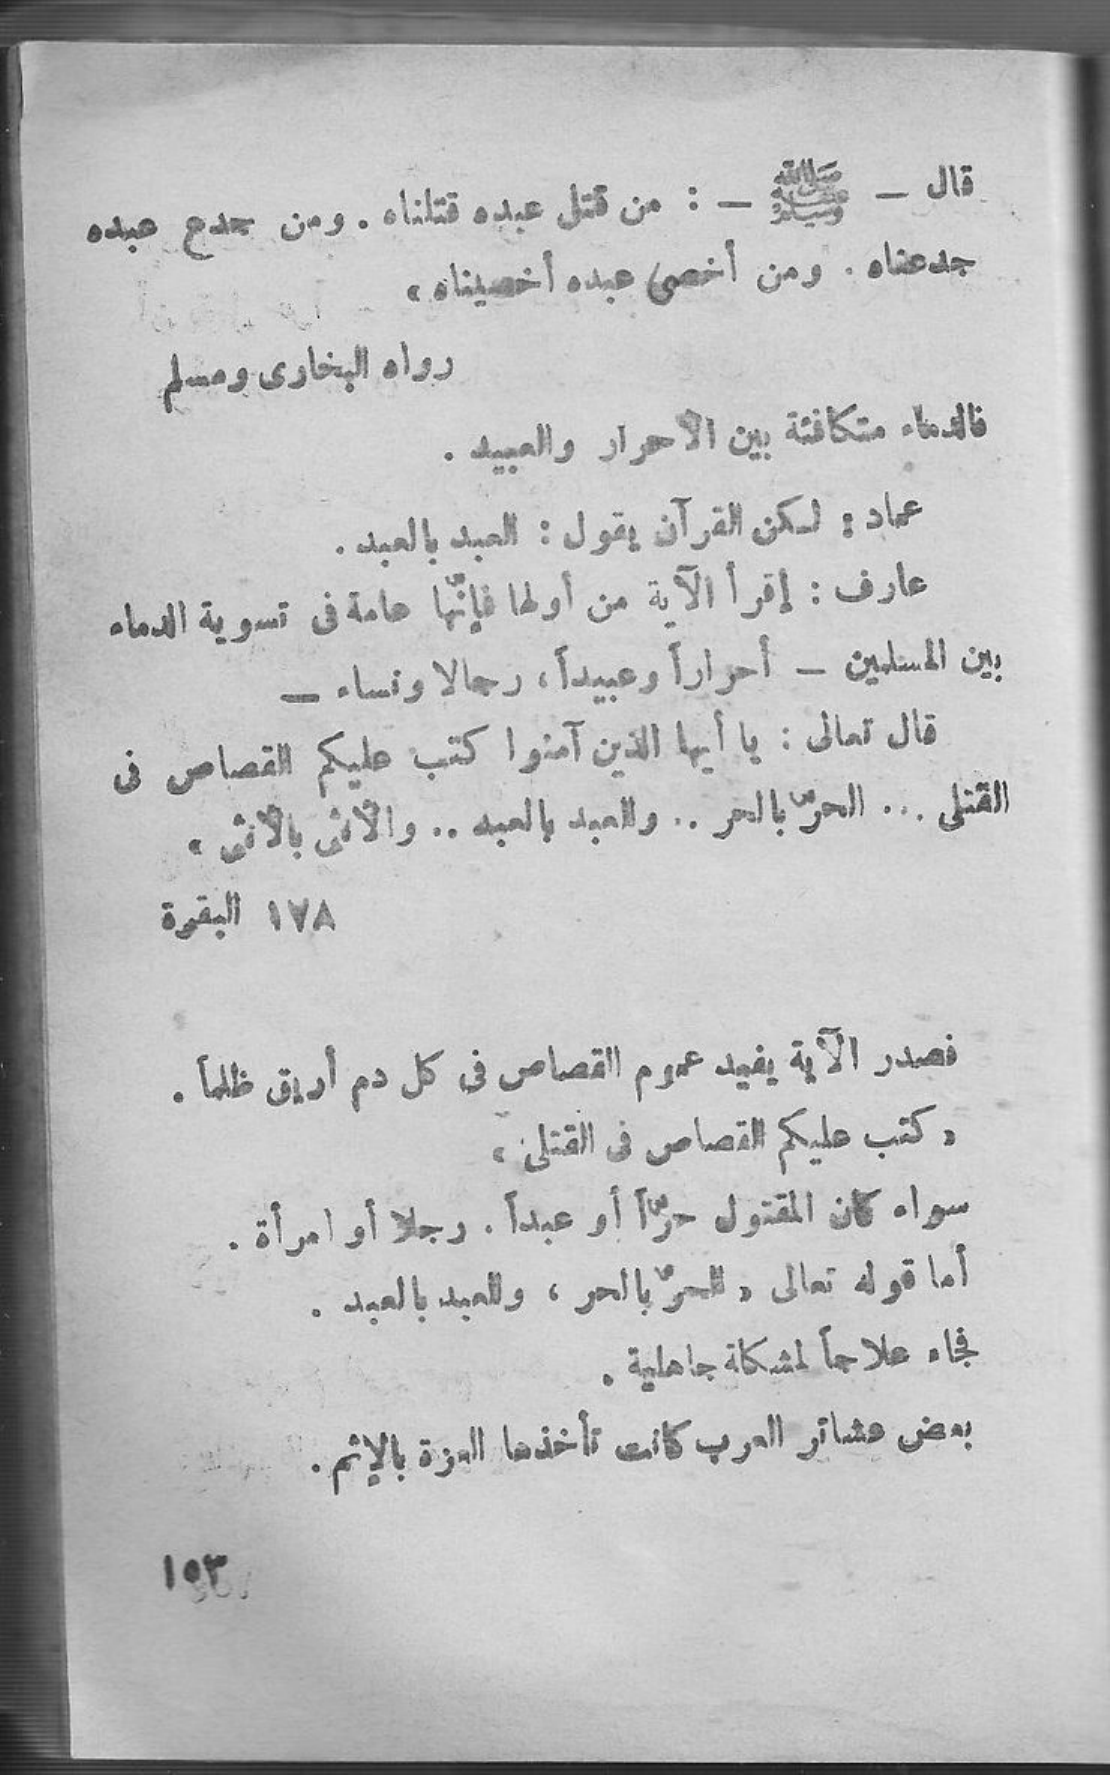 قال – ﷺ – : من قتل عبده قتلناه . ومن جدع عبده
جدعناه . ومن أخصى عبده أخصيناه »
رواه البخارى ومسلم
فالدماء متكافئة بين الأحرار والعبيد .
عماد : لكن القرآن يقول : العبد بالعبد .
عارف : إقرأ الآية من أولها فإنّها عامة فى تسوية الدماء
بين المسلمين – أحراراً وعبيداً ، رجالا ونساء –
قال تعالى : يا أيها الذين آمنوا كتب عليكم القصاص فى
القتلى ... الحرّ بالحر .. والعبد بالعبد .. والأنثى بالأنثى »
١٧٨ البقرة
فصدر الآية يفيد عموم القصاص فى كل دم أريق ظلماً .
« كتب عليكم القصاص فى القتلى »
سواء كان المقتول حرّاً أو عبداً . رجلا أو امرأة .
أما قوله تعالى « الحرّ بالحر ، والعبد بالعبد .
فجاء علاجاً لمشكلة جاهلية .
بعض عشائر العرب كانت تأخذها العزة بالإثم .
١٥٣